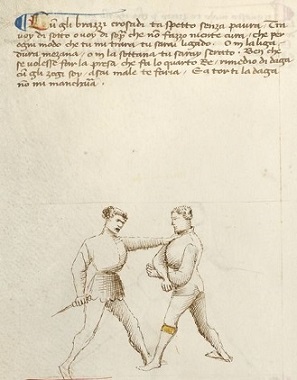 Cum gli brazzi crosadi ta spetto senza paura. Tra
voy di sotto o voy di sopra che non fazo niente cura, che per
ogni modo che tu mi trara tu sarai ligado. O in la liga
dura mezana, o in la sottana tu saray serato. Ben che
se volesse far la presa che fa lo quarto Re, rimedio di daga
cum gli zogi soy, assai male te faria. E a torti la daga
non mi manchava.